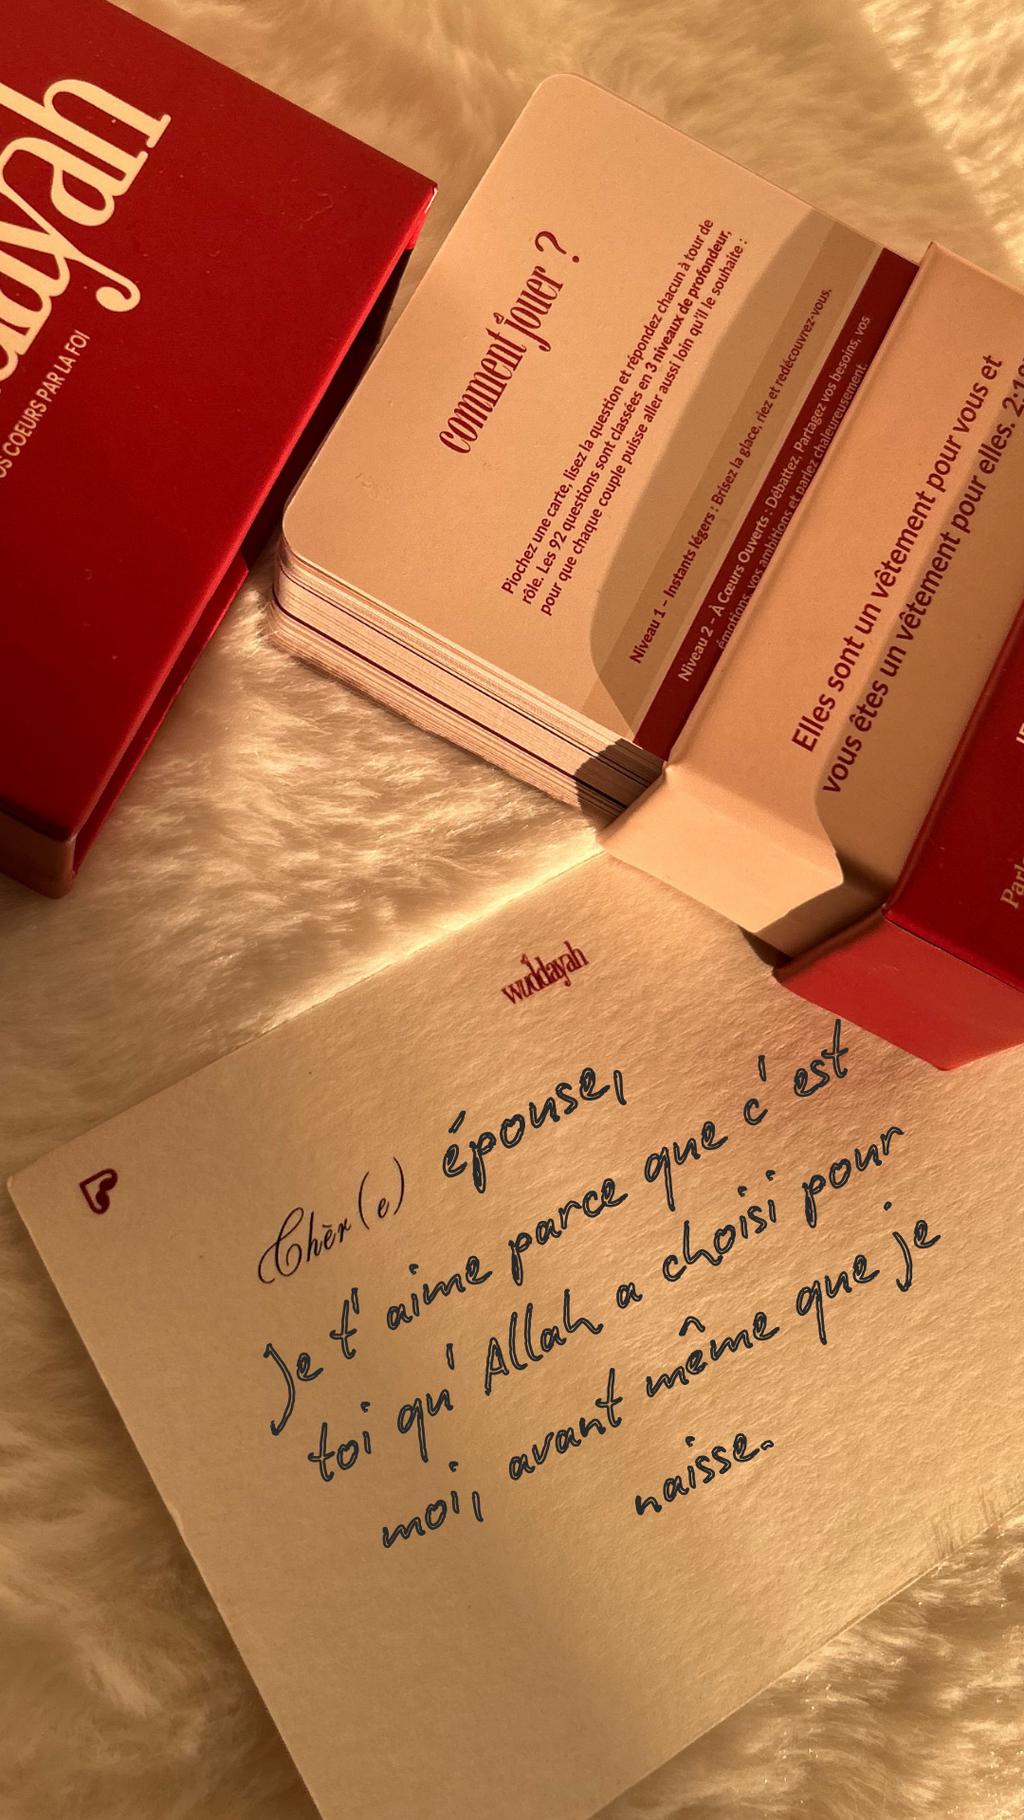 comment jouer ?
Piochez une carte, lisez la question et répondez chacun à tour de
rôle. Les 92 questions sont classées en 3 niveaux de profondeur,
pour que chaque couple puisse aller aussi loin qu'il le souhaite :
Niveau 1 – Instants légers : Brisez la glace, riez et redécouvrez-vous.
Niveau 2 – À Cœurs Ouverts : Débattez, Partagez vos besoins, vos
émotions, vos ambitions et parlez chaleureusement.
Elles sont un vêtement pour vous et
vous êtes un vêtement pour elles.
COEURS PAR LA FOI
wuddayah
Chèr(e) épouse,
Je t'aime parce que c'est
toi qu'Allah a choisi pour
moi, avant même que je
naisse.